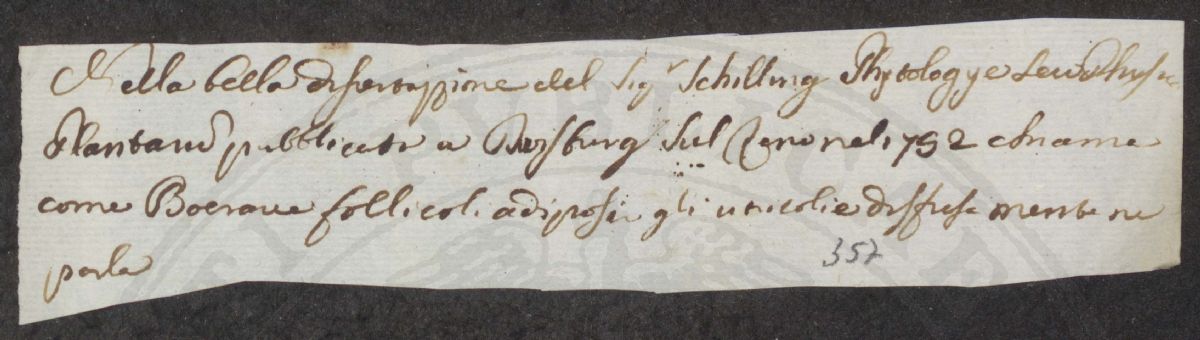 Nella bella dissertazione del Sig.r Schilling Phytologye seu Physic
Plantarum pubblicata a Duisburg sul Reno nel 1752 chiama
come Boerave follicoli adiposi gli utricoli e diffusamente ne
parla
357